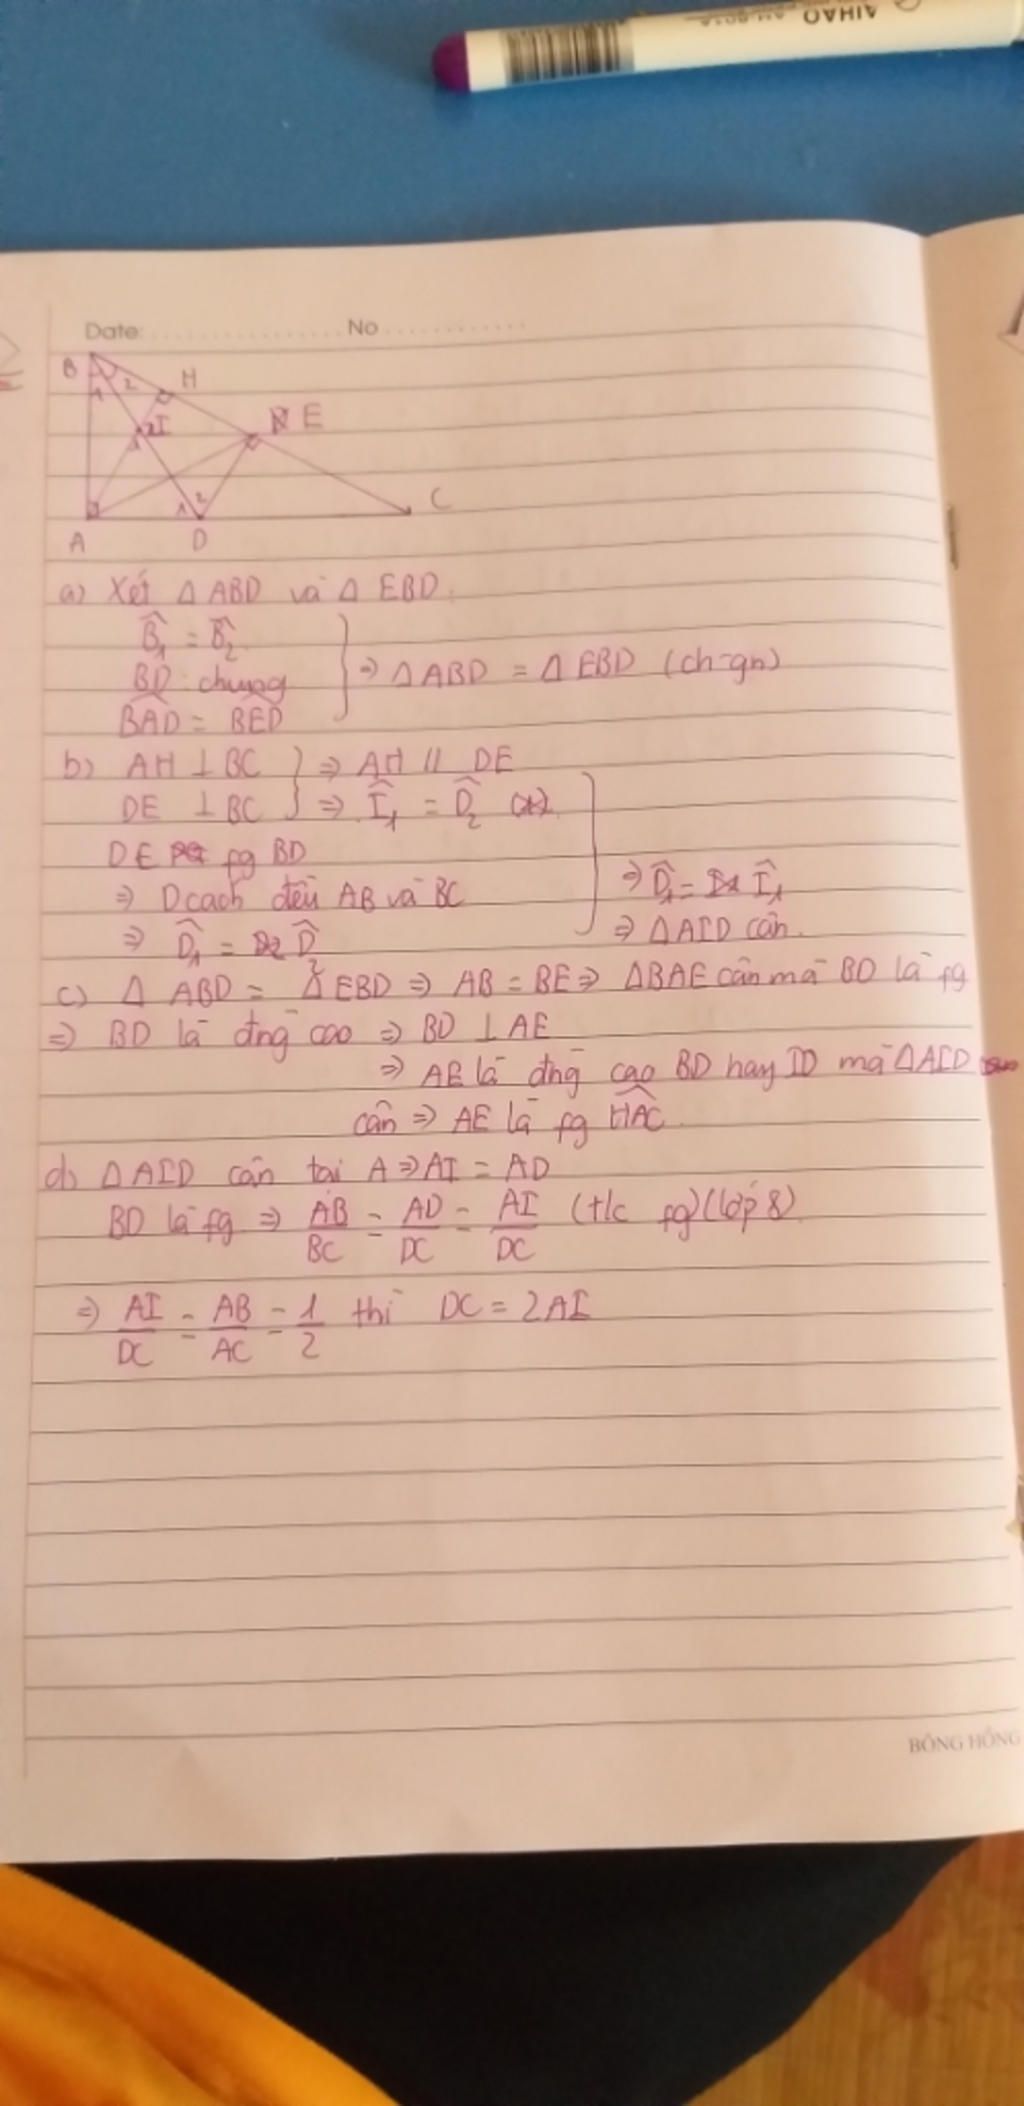 AIHAO
Date: No
B 1 2 H
1 2 I E
A 1 2 D C
a) Xét Δ ABD và Δ EBD.
B̂₁ = B̂₂
BD: chung ⇒ Δ ABD = Δ EBD (ch-gn)
BAD = BED
b) AH ⊥ BC ⇒ AH // DE
DE ⊥ BC ⇒ Î₁ = D̂₂ (*)
D E fg BD
⇒ D cách đều AB và BC ⇒ D̂₁ = Î₁
⇒ D̂₁ = D̂₂ ⇒ Δ AID cân.
c) Δ ABD = Δ EBD ⇒ AB = BE ⇒ Δ BAE cân mà BD là fg
⇒ BD là đng cao ⇒ BD ⊥ AE
⇒ AE là đng cao BD hay ID mà Δ AID
cân ⇒ AE là fg HAC.
d) Δ AID cân tai A ⇒ AI = AD
BD là fg ⇒ AB/BC = AD/DC = AI/DC (t/c fg) (lớp 8)
⇒ AI/DC = AB/AC = 1/2 thì DC = 2AI
BÔNG HỒNG